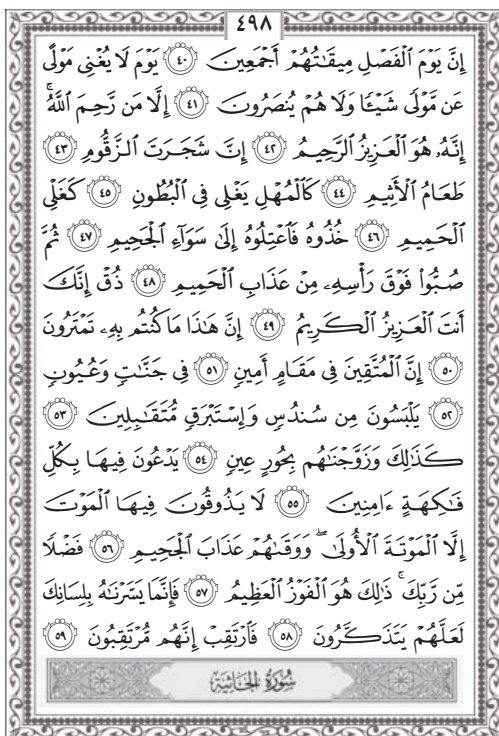 ٤٩٨
إِنَّ يَوْمَ ٱلْفَصْلِ مِيقَٰتُهُمْ أَجْمَعِينَ ٤٠ يَوْمَ لَا يُغْنِى مَوْلًى
عَن مَّوْلًى شَيْـًٔا وَلَا هُمْ يُنصَرُونَ ٤١ إِلَّا مَن رَّحِمَ ٱللَّهُ ۚ
إِنَّهُۥ هُوَ ٱلْعَزِيزُ ٱلرَّحِيمُ ٤٢ إِنَّ شَجَرَتَ ٱلزَّقُّومِ ٤٣
طَعَامُ ٱلْأَثِيمِ ٤٤ كَٱلْمُهْلِ يَغْلِى فِى ٱلْبُطُونِ ٤٥ كَغَلْىِ
ٱلْحَمِيمِ ٤٦ خُذُوهُ فَٱعْتِلُوهُ إِلَىٰ سَوَآءِ ٱلْجَحِيمِ ٤٧ ثُمَّ
صُبُّوا۟ فَوْقَ رَأْسِهِۦ مِنْ عَذَابِ ٱلْحَمِيمِ ٤٨ ذُقْ إِنَّكَ
أَنتَ ٱلْعَزِيزُ ٱلْكَرِيمُ ٤٩ إِنَّ هَٰذَا مَا كُنتُم بِهِۦ تَمْتَرُونَ
٥٠ إِنَّ ٱلْمُتَّقِينَ فِى مَقَامٍ أَمِينٍ ٥١ فِى جَنَّٰتٍ وَعُيُونٍ
٥٢ يَلْبَسُونَ مِن سُندُسٍ وَإِسْتَبْرَقٍ مُّتَقَٰبِلِينَ ٥٣
كَذَٰلِكَ وَزَوَّجْنَٰهُم بِحُورٍ عِينٍ ٥٤ يَدْعُونَ فِيهَا بِكُلِّ
فَٰكِهَةٍ ءَامِنِينَ ٥٥ لَا يَذُوقُونَ فِيهَا ٱلْمَوْتَ
إِلَّا ٱلْمَوْتَةَ ٱلْأُولَىٰ ۖ وَوَقَىٰهُمْ عَذَابَ ٱلْجَحِيمِ ٥٦ فَضْلًا
مِّن رَّبِّكَ ۚ ذَٰلِكَ هُوَ ٱلْفَوْزُ ٱلْعَظِيمُ ٥٧ فَإِنَّمَا يَسَّرْنَٰهُ بِلِسَانِكَ
لَعَلَّهُمْ يَتَذَكَّرُونَ ٥٨ فَٱرْتَقِبْ إِنَّهُم مُّرْتَقِبُونَ ٥٩
سُورَةُ الجَاثِيَةِ